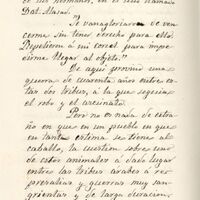 de sus hermanos, en el sitio llamado
Dat-Alasad.
"Te vanagloriaron de ven-
cerme sin tener derecho para ello.
Repelieron a tu corcel para impe-
dirme llegar al objeto."
De aquí provino una
guerra de cuarenta años entre es-
tas dos tribus, a la que seguían
el robo y el asesinato.
Pero no es nada de estra-
ño en que en un pueblo en que
en tanta estima se tiene al
caballo, la cuestion sobre uno
de estos animales a dado lugar
entre las tribus arabes á re-
presalias y guerras muy san-
grientas y de larga duracion,